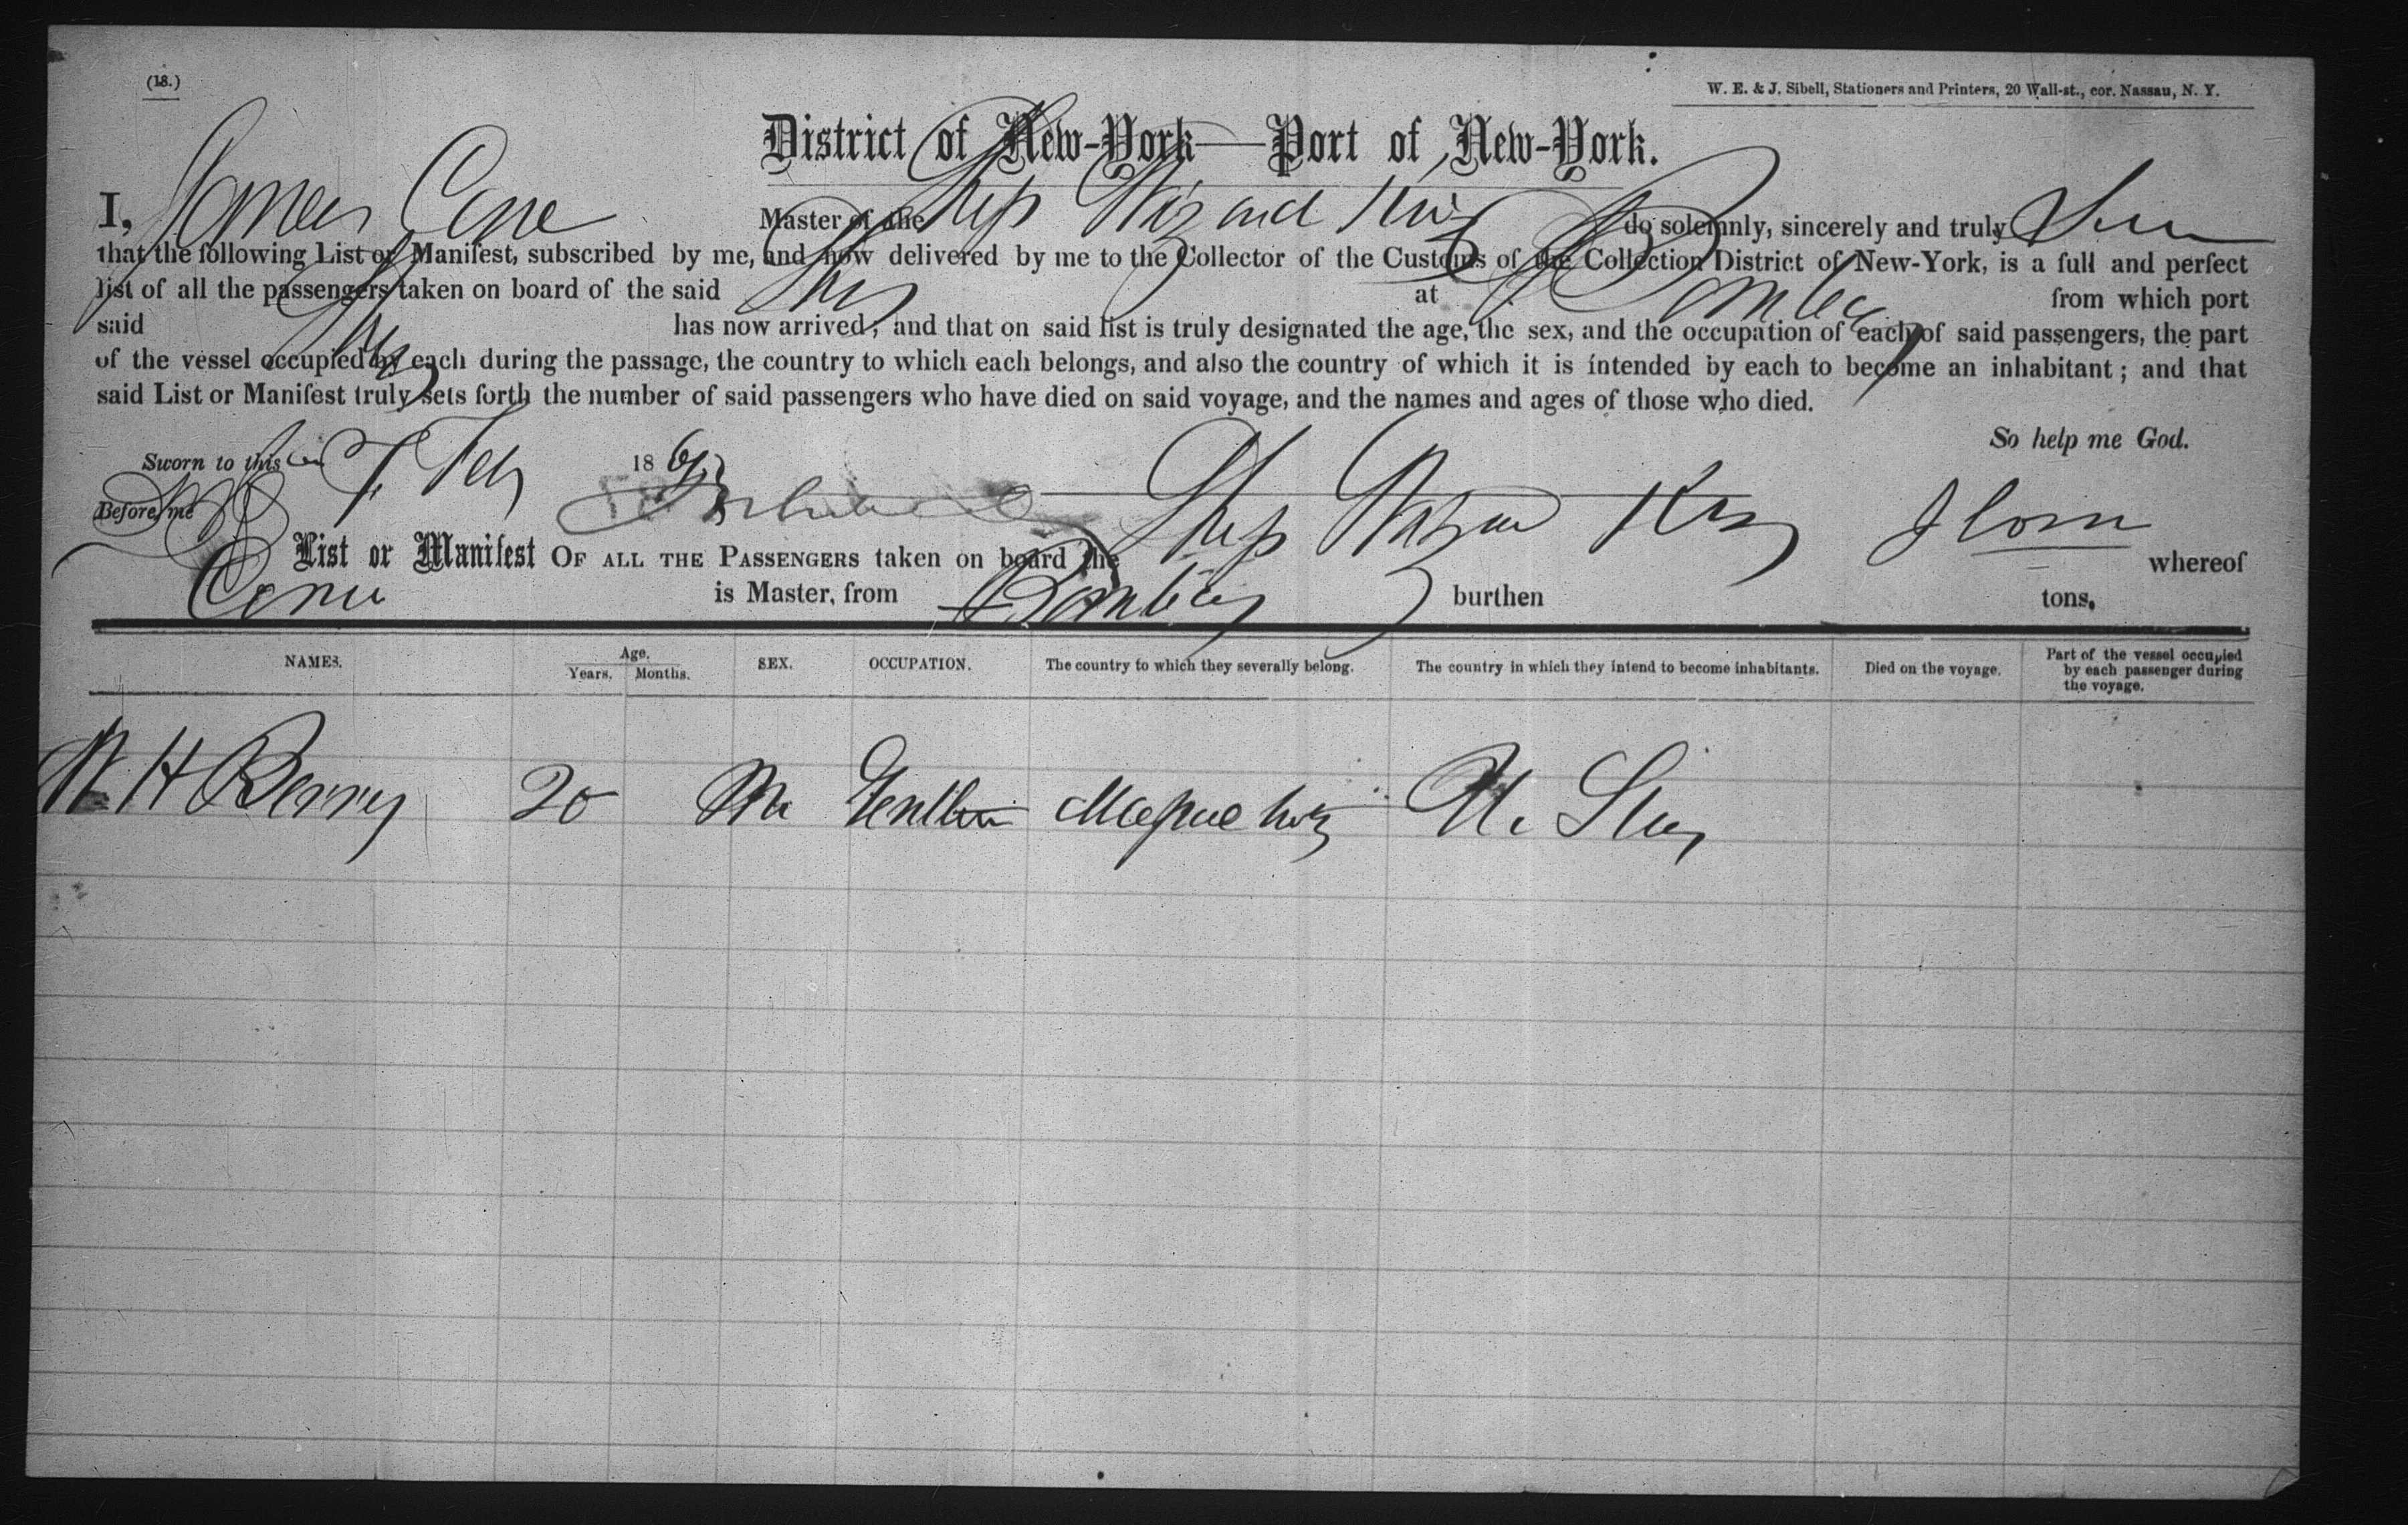 (18.)
W. E. & J. Sibell, Stationers and Printers, 20 Wall-st., cor. Nassau, N. Y.
District of New-York—Port of New-York.
I, James Master of the Ship Wizard King do solemnly, sincerely and truly
that the following List or Manifest, subscribed by me, and now delivered by me to the Collector of the Customs of the Collection District of New-York, is a full and perfect
list of all the passengers taken on board of the said Ship at Bombay from which port
said Ship has now arrived; and that on said list is truly designated the age, the sex, and the occupation of each of said passengers, the part
of the vessel occupied by each during the passage, the country to which each belongs, and also the country of which it is intended by each to become an inhabitant; and that
said List or Manifest truly sets forth the number of said passengers who have died on said voyage, and the names and ages of those who died.
So help me God.
Sworn to this 7 Feb 186
Before me
List or Manifest OF ALL THE PASSENGERS taken on board the Ship Wizard King whereof
is Master, from Bombay burthen tons.
NAMES. Age. Years. Months. SEX. OCCUPATION. The country to which they severally belong. The country in which they intend to become inhabitants. Died on the voyage. Part of the vessel occupied by each passenger during the voyage.
W. H Berry 20 M U. States